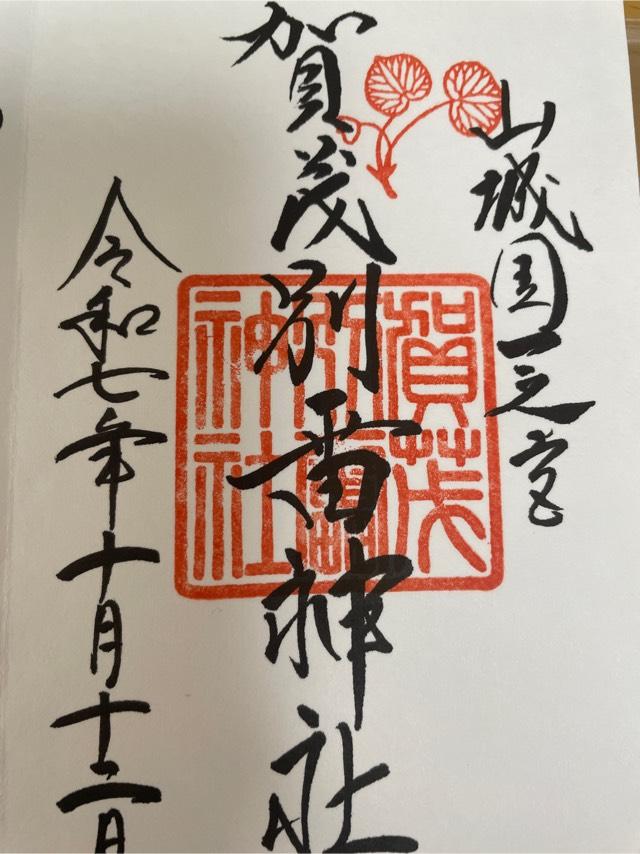 山城国一之宮
賀茂別雷神社
令和七年十月十二日
賀茂別雷神社